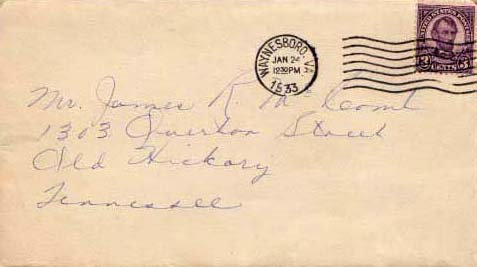 WAYNESBORO, VA.
JAN 24
12 30 PM
1933
UNITED STATES POSTAGE
3 CENTS 3
Mr. James R. Mc
1303 Overton Street
Old Hickory
Tennessee